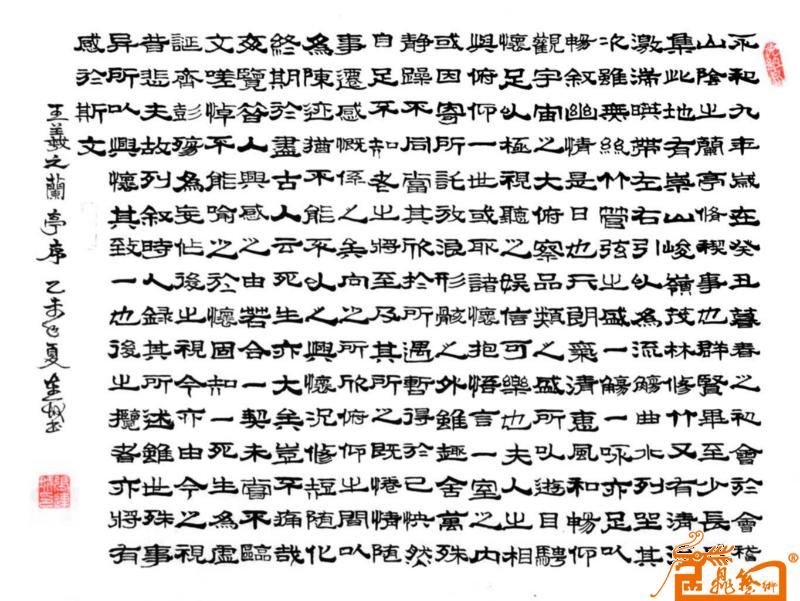 永和九年歲在癸丑暮春之初會於會稽
山陰之蘭亭修禊事也群賢畢至少長
集此地有崇山峻嶺茂林修竹又有清
激湍暎帶左右引以為流觴曲水列坐其
次雖無絲竹管弦之盛一觴一咏亦足以
暢叙幽情是日也天朗氣清惠風和暢仰
觀宇宙之大俯察品類之盛所以遊目騁
懷足以極視聽之娛信可樂也夫人之相
與俯仰一世或取諸懷抱悟言一室之內
或因寄所託放浪形骸之外雖趣舍萬殊
靜躁不同當其欣於所遇暫得於己快然
自足不知老之將至及其所之既惓情随
事遷感慨係之矣向之所欣俯仰之間以
為陳迹猶不能不以之興懷況修短随化
終期於盡古人云死生亦大矣豈不痛哉
每覽昔人興感之由若合一契未嘗不臨
文嗟悼不能喻之於懷固知一死生為虛
誕齊彭殤為妄作後之視今亦由今之視
昔悲夫故列叙時人録其所述雖世殊事
异所以興懷其致一也後之攬者亦將有
感於斯文
王羲之蘭亭序 乙未年夏